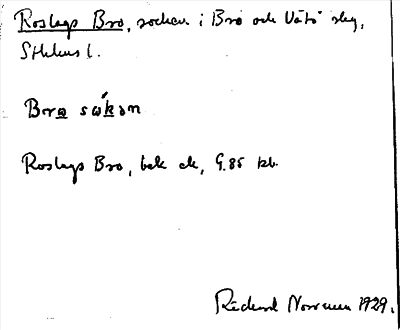 Roslags Bro, socken i Bro och Vätö skg,
Sthlms l.
Bora sokən
Roslags Bro, bek ek, G.85 kb.
Rickard Norrman 1929.